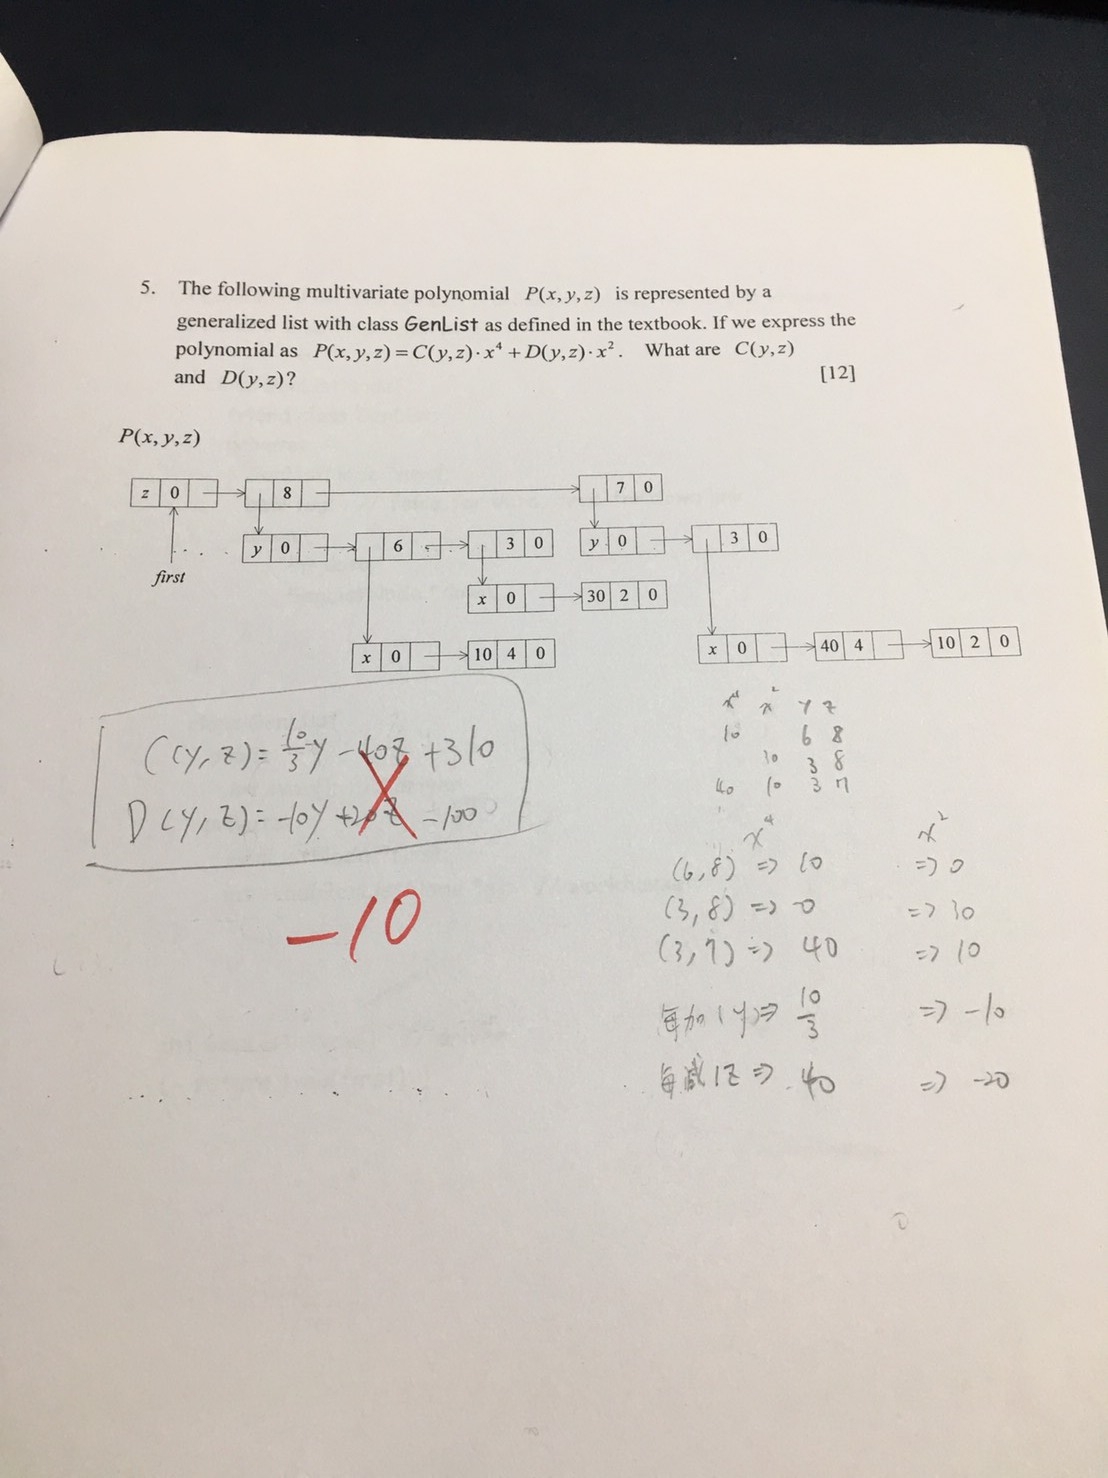 5. The following multivariate polynomial P(x, y, z) is represented by a
generalized list with class GenList as defined in the textbook. If we express the
polynomial as P(x, y, z) = C(y, z)·x⁴ + D(y, z)·x². What are C(y, z)
and D(y, z)? [12]
P(x, y, z)
z 0 8 7 0
y 0 6 3 0 y 0 3 0
first
x 0 30 2 0
x 0 10 4 0 x 0 40 4 10 2 0
x⁴ x² y z
10 6 8
30 3 8
40 10 3 7
C(y, z) = 10/3 y - 40z + 310
D(y, z) = -10y + 20z - 100
-10
x⁴ x²
(6,8) => 10 => 0
(3,8) => 0 => 30
(3,7) => 40 => 10
每加1y => 10/3 => -10
每減1z => 40 => -20